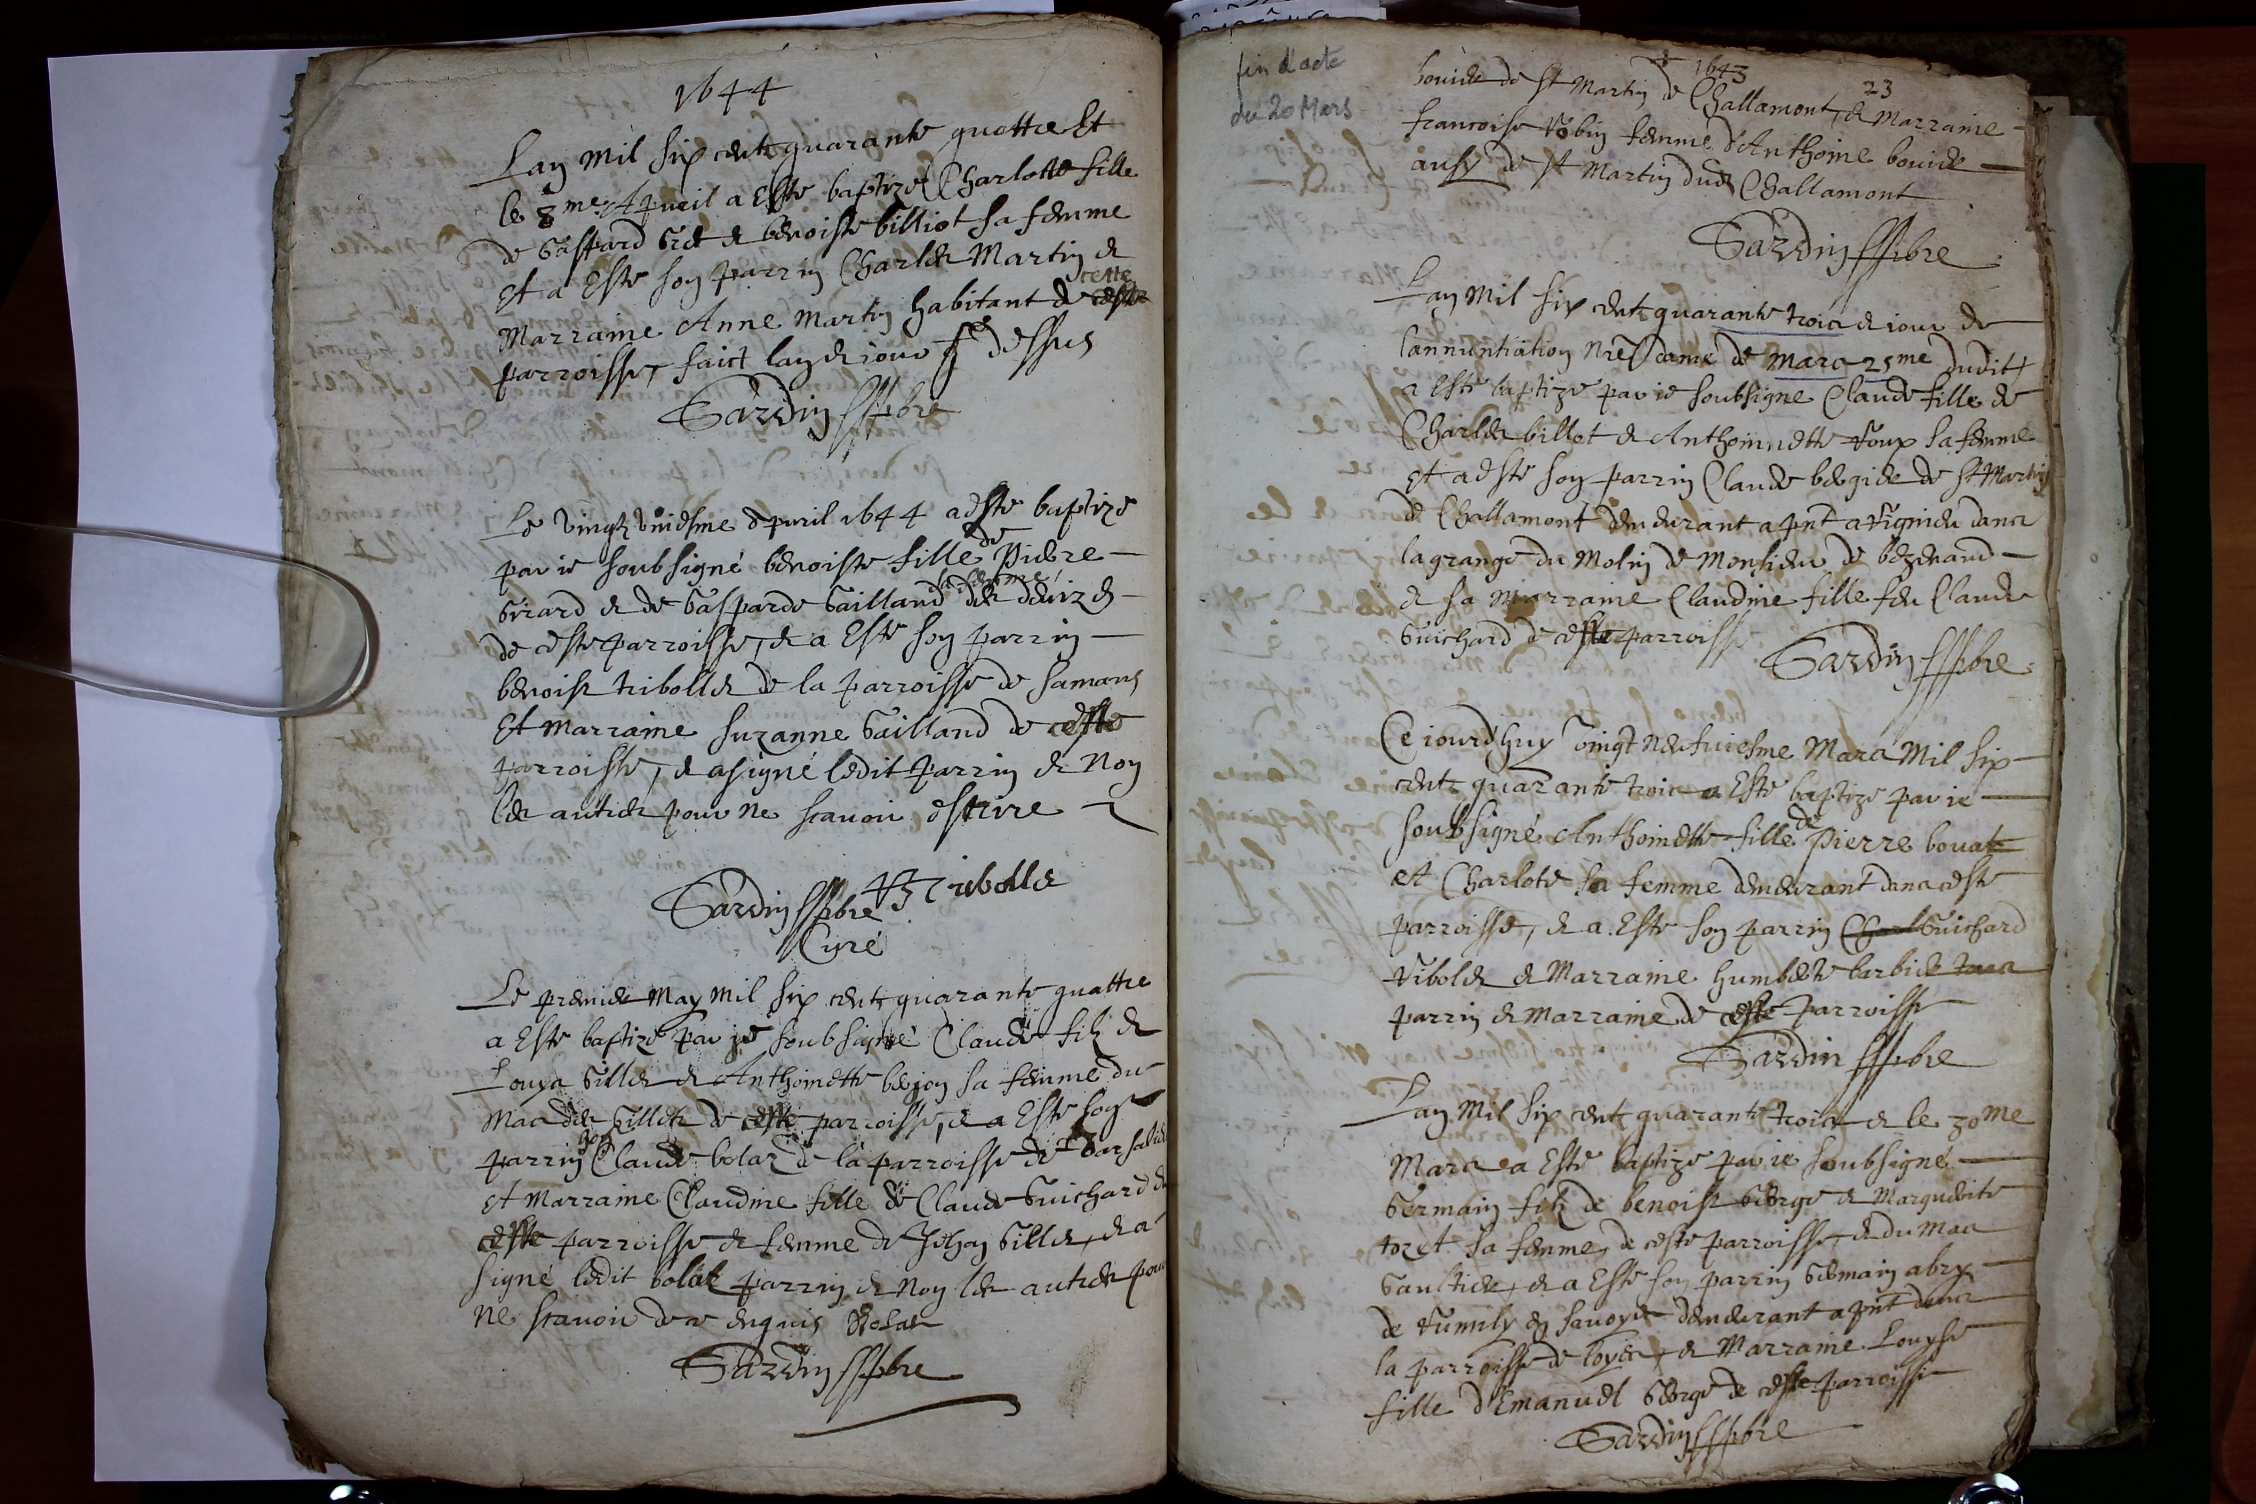 1644
Lan mil six centz quarante quattre Et
le 8me Apuril a Este baptizé Charlotte fille
de Gaspard et benoiste billiot sa femme
Et a Este son parrin Charles Martin et
cette
Marraine Anne Martin habitant de ceste
parroisse, faict lan et iour dessus
Sardin pbre
Le vingt uniesme Apuril 1644 a este baptize
de
par ie soubsigné benoiste fille Pierre
femme
Girard et de Gasparde Gailland des
de ceste parroisse, et a Este son parrin
benoist tribollet de la parroisse de samans
Et marraine suzanne Gailland de ceste
parroisse, et a signé ledit parrin et non
les autres pour ne scauoir escrire
Sardin pbre Tribollet
Curé
Le premier May mil six centz quarante quattre
a Este baptizé par ie soubsigné Claude filz de
Louys Gillet et Anthoinette sa femme du
Mas des Gilletz de ceste parroisse, et a Este son
parrin Claude bolaz de la parroisse de
et marraine Claudine fille de Claude Guichard de
ceste parroisse et femme de Jehan Gillet, et a
signé ledit bolaz parrin et non les autres pour
ne scauoir de ce enquis Bolaz
Sardin pbre
1643
23
fin d'acte
du 20 Mars
bouier de St Martin de Challamont, et Marraine
francoise Robin femme d'Anthoine bouier
ausy de St Martin dud Challamont
Sardin pbre
Lan mil six centz quarante trois et iour de
lannuntiation nre dame de mars 25me dudit
a Este baptize par ie soubsigne Claude fille de
Charles billot et Anthoinette Roux sa femme
Et a este son parrin Claude de St Martin
de Challamont demeurant a pnt a dans
la grange du Molin de Monsieur de
et sa marraine Claudine fille feu Claude
Guichard de ceste parroisse
Sardin pbre
Ce iourdhuy vingt neufuiesme Mars Mil six
centz quarante trois a Este baptize par ie
de
soubsigné Anthoinette fille Pierre bouat
et Charlote sa femme demeurant dans ceste
parroisse, et a Este son parrin Charl Guichard
Ribolet et Marraine humberte barbier tous
parrin et marraine de ceste parroisse
Sardin pbre
Lan mil six centz quarante trois et le 30me
Mars a Este baptize par ie soubsigné
Germain filz de benoist George et Marguerite
sa femme, de ceste parroisse, et du mas
Gaultier, et a Este son parrin Germain abry
de Rumily en sauoye demeurant a pnt dans
la parroisse de loyes, et Marraine Louyse
fille d'Emanuel George de ceste parroisse
Sardin pbre